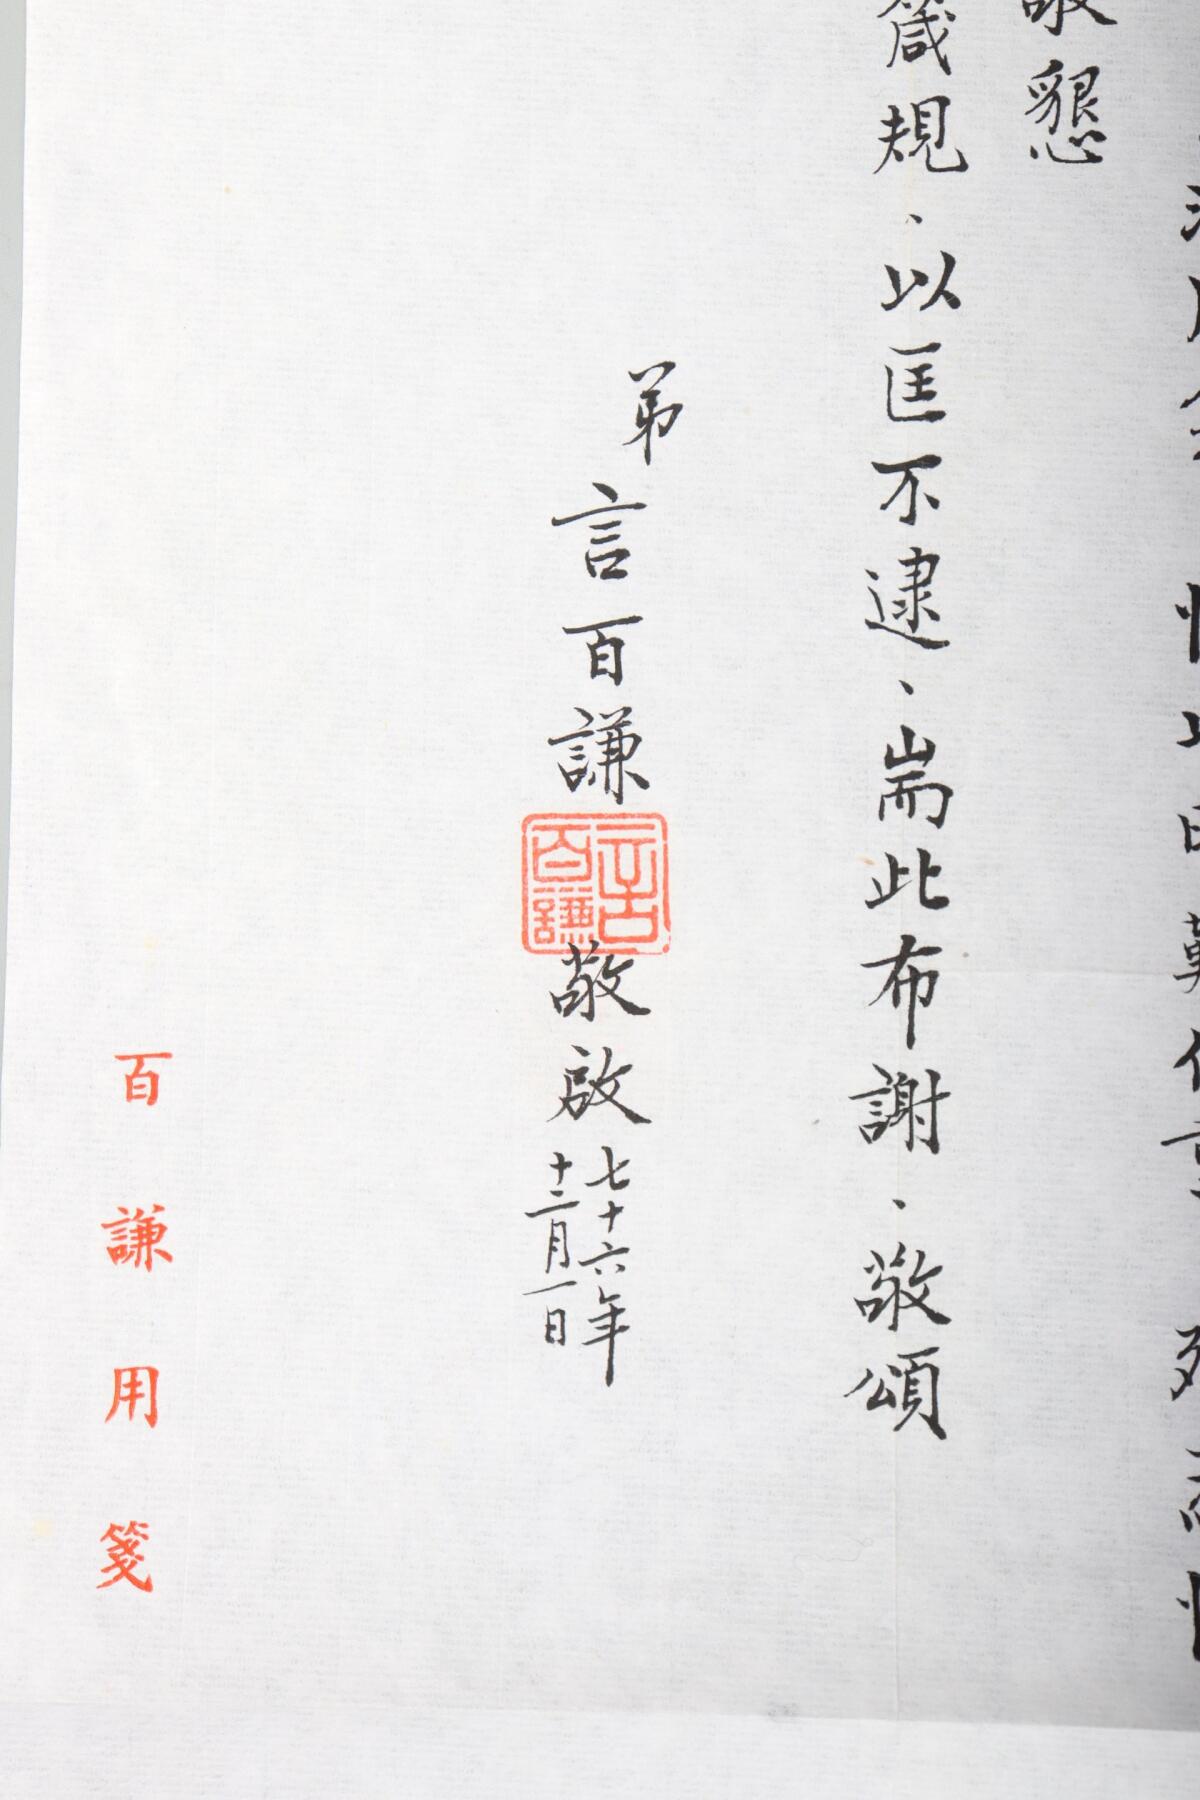 敬懇
箴規、以匡不逮、耑此布謝、敬頌
弟言百謙敬啟
七十六年
十二月一日
言百謙
百謙用箋